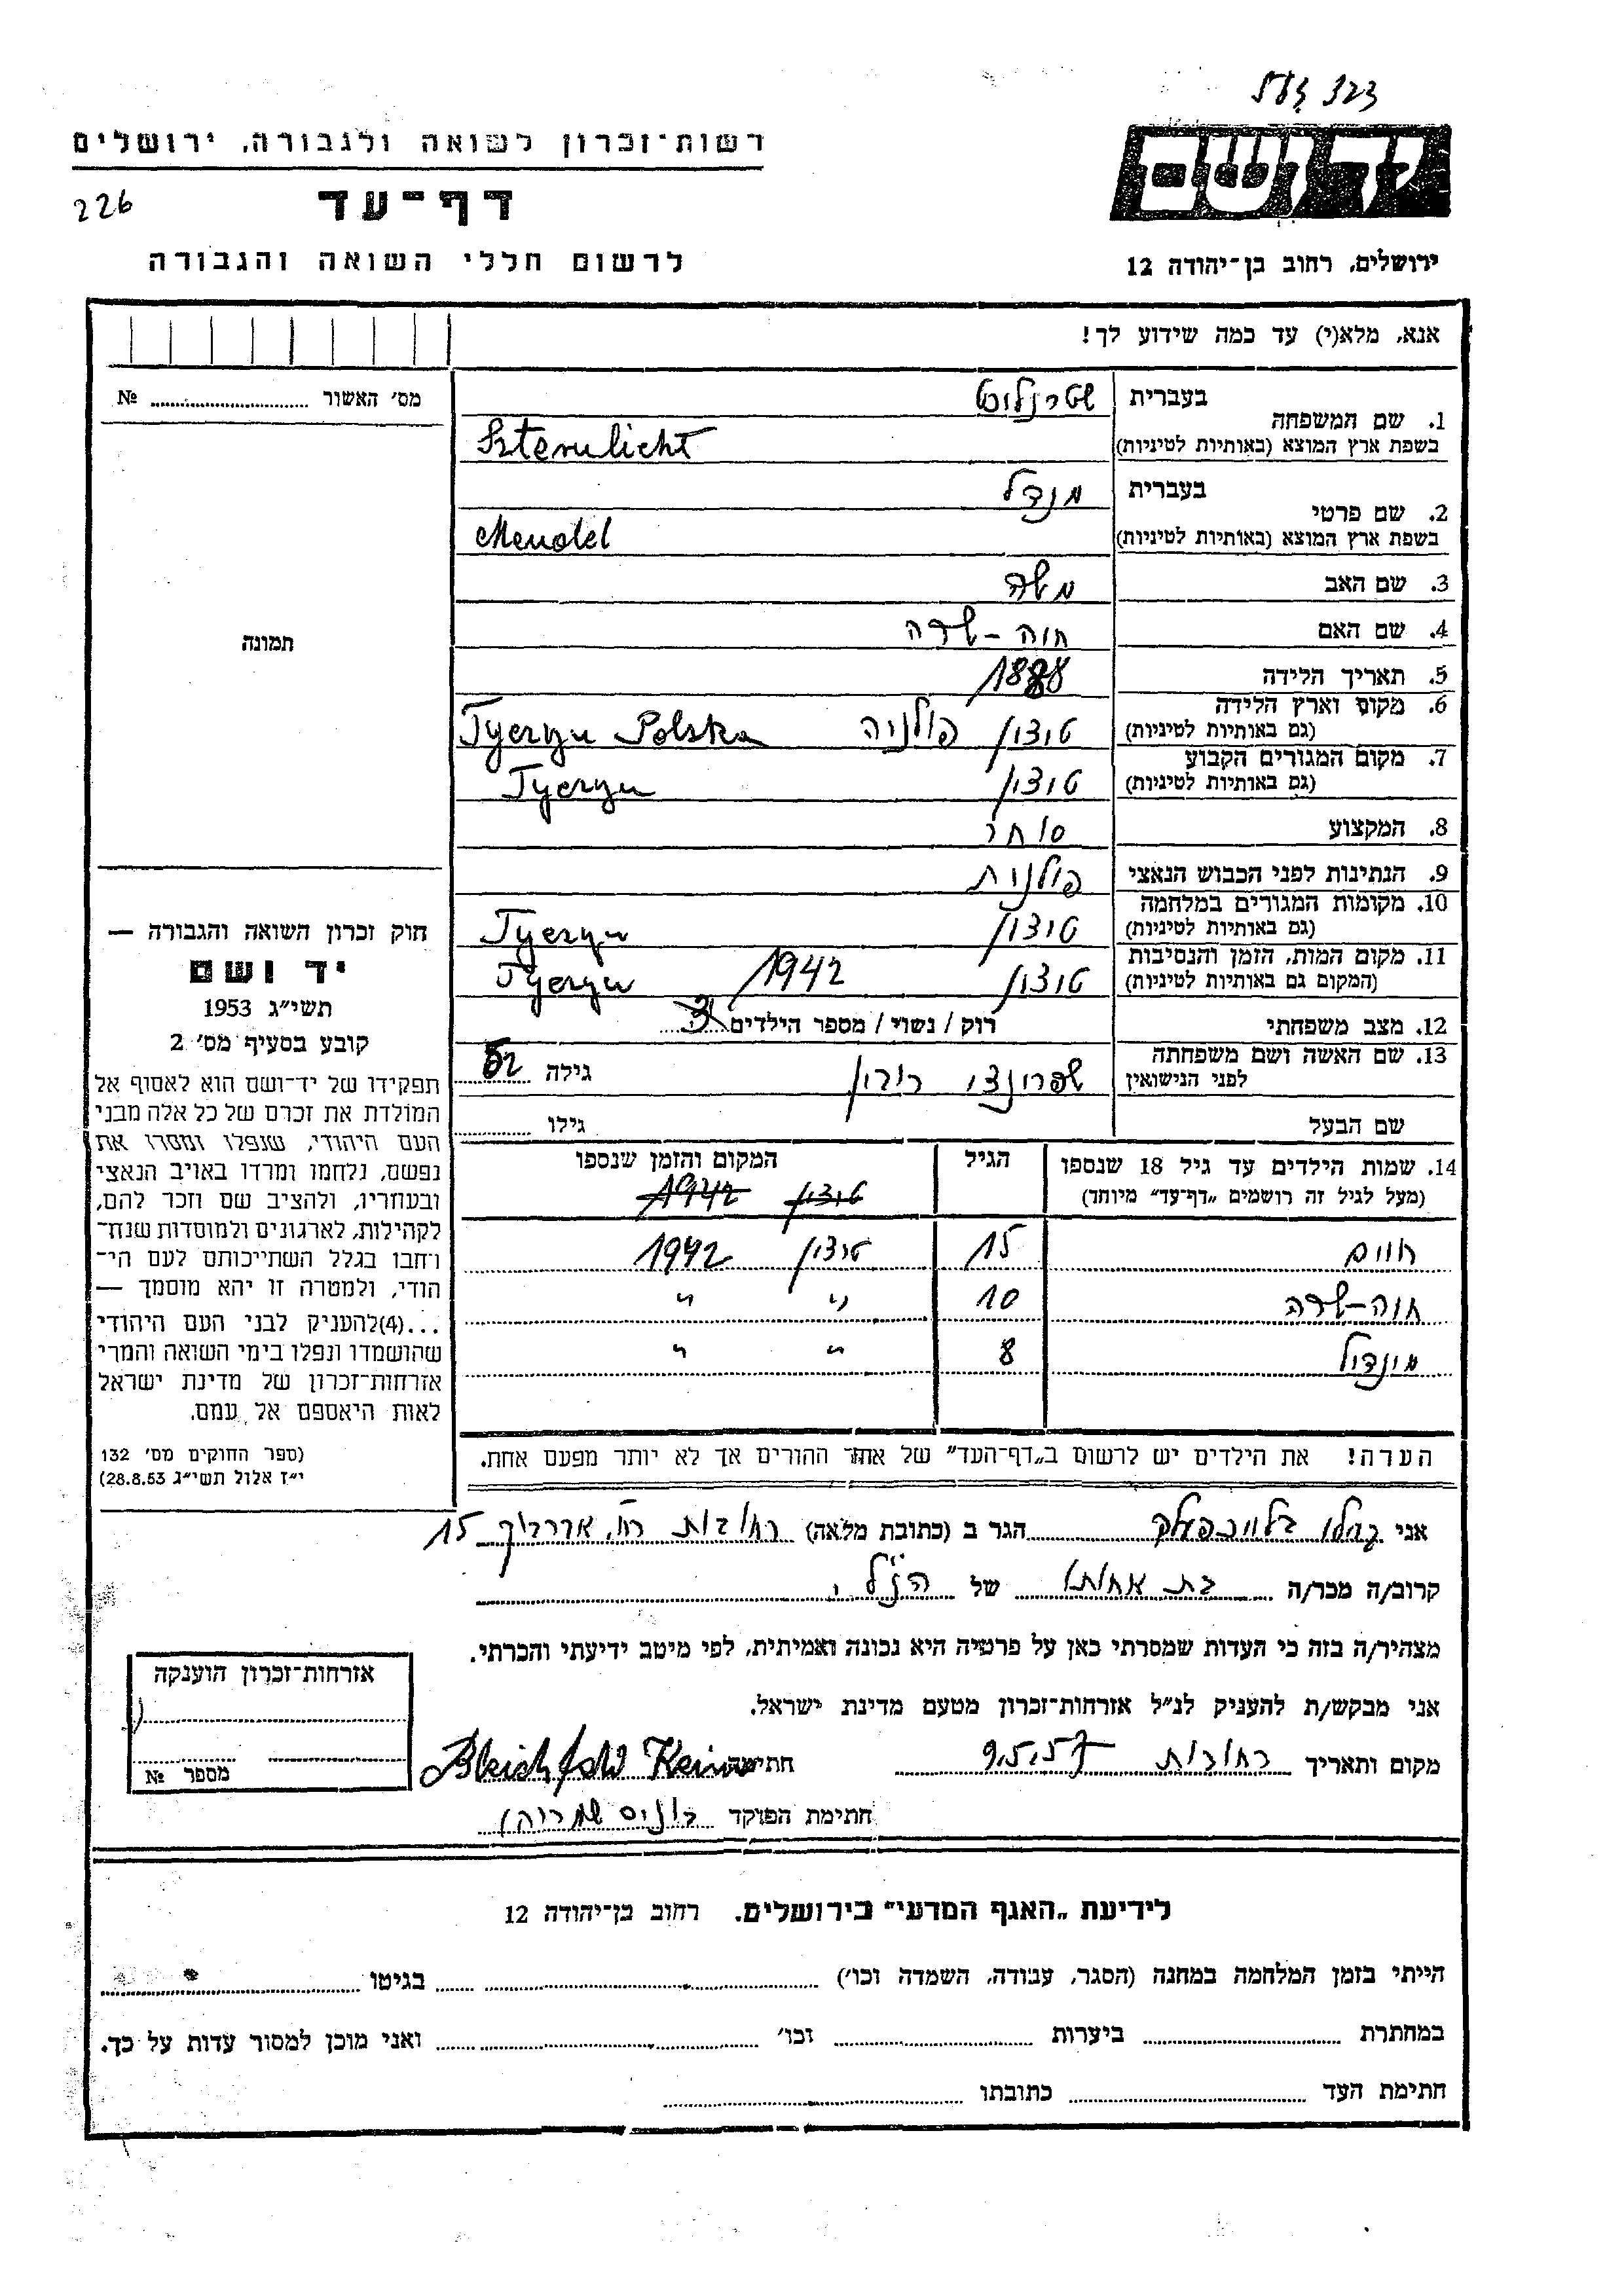 רשות־זכרון לשואה ולגבורה, ירושלים
226
דף־עד
לרשום חללי השואה והגבורה
יד ושם
ירושלים, רחוב בן־יהודה 12
אנא, מלא(י) עד כמה שידוע לך!
מס׳ האשור № ....................
תמונה
1. שם המשפחה בעברית שטרנליכט
בשפת ארץ המוצא (באותיות לטיניות) Szternlicht
2. שם פרטי בעברית מנדל
בשפת ארץ המוצא (באותיות לטיניות) Mendel
3. שם האב משה
4. שם האם חוה-שרה
5. תאריך הלידה 1888
6. מקום וארץ הלידה (גם באותיות לטיניות) טוצין פולניה Tyeryn Polska
7. מקום המגורים הקבוע (גם באותיות לטיניות) טוצין Tyeryn
8. המקצוע סוחר
9. הנתינות לפני הכבוש הנאצי פולנית
10. מקומות המגורים במלחמה (גם באותיות לטיניות) טוצין Tyeryn
11. מקום המות, הזמן והנסיבות (המקום גם באותיות לטיניות) טוצין 1942 Tyeryn
12. מצב משפחתי רוק / נשוי / מספר הילדים 3
13. שם האשה ושם משפחתה לפני הנישואין שפרונצי רורין גילה 52
שם הבעל גילו
14. שמות הילדים עד גיל 18 שנספו הגיל המקום והזמן שנספו
(מעל לגיל זה רושמים „דף־עד” מיוחד) טוצין 1942
חיים 15 טוצין 1942
חוה-שרה 10 " "
מונדיל 8 " "
הערה! את הילדים יש לרשום ב„דף־העד” של אחד ההורים אך לא יותר מפעם אחת.
חוק זכרון השואה והגבורה —
יד ושם
תשי״ג 1953
קובע בסעיף מס׳ 2
תפקידו של יד־ושם הוא לאסוף אל
המולדת את זכרם של כל אלה מבני
העם היהודי, שנפלו ומסרו את
נפשם, נלחמו ומרדו באויב הנאצי
ובעוזריו, ולהציב שם וזכר להם,
לקהילות, לארגונים ולמוסדות שנח־
רחבו בגלל השתייכותם לעם הי־
הודי, ולמטרה זו יהא מוסמך —
...(4)להעניק לבני העם היהודי
שהושמדו ונפלו בימי השואה והמרי
אזרחות־זכרון של מדינת ישראל
לאות היאספם אל עמם.
(ספר החוקים מס׳ 132
י״ז אלול תשי״ג 28.8.53)
אני בלייכפלד הגר ב (כתובת מלאה) רחובות רח׳ 15
קרוב/ה מכר/ה בת אחותו של הנ״ל
מצהיר/ה בזה כי העדות שמסרתי כאן על פרטיה היא נכונה ואמיתית, לפי מיטב ידיעתי והכרתי.
אני מבקש/ת להעניק לנ״ל אזרחות־זכרון מטעם מדינת ישראל.
מקום ותאריך רחובות 9.5.57 חתימה Bleichfeld
חתימת הפוקד שמריהו
אזרחות־זכרון הוענקה
מספר №
לידיעת „האגף המדעי” בירושלים. רחוב בן־יהודה 12
הייתי בזמן המלחמה במחנה (הסגר, עבודה, השמדה וכו׳) בגיטו
במחתרת ביערות וכו׳ ואני מוכן למסור עדות על כך.
חתימת העד כתובתו